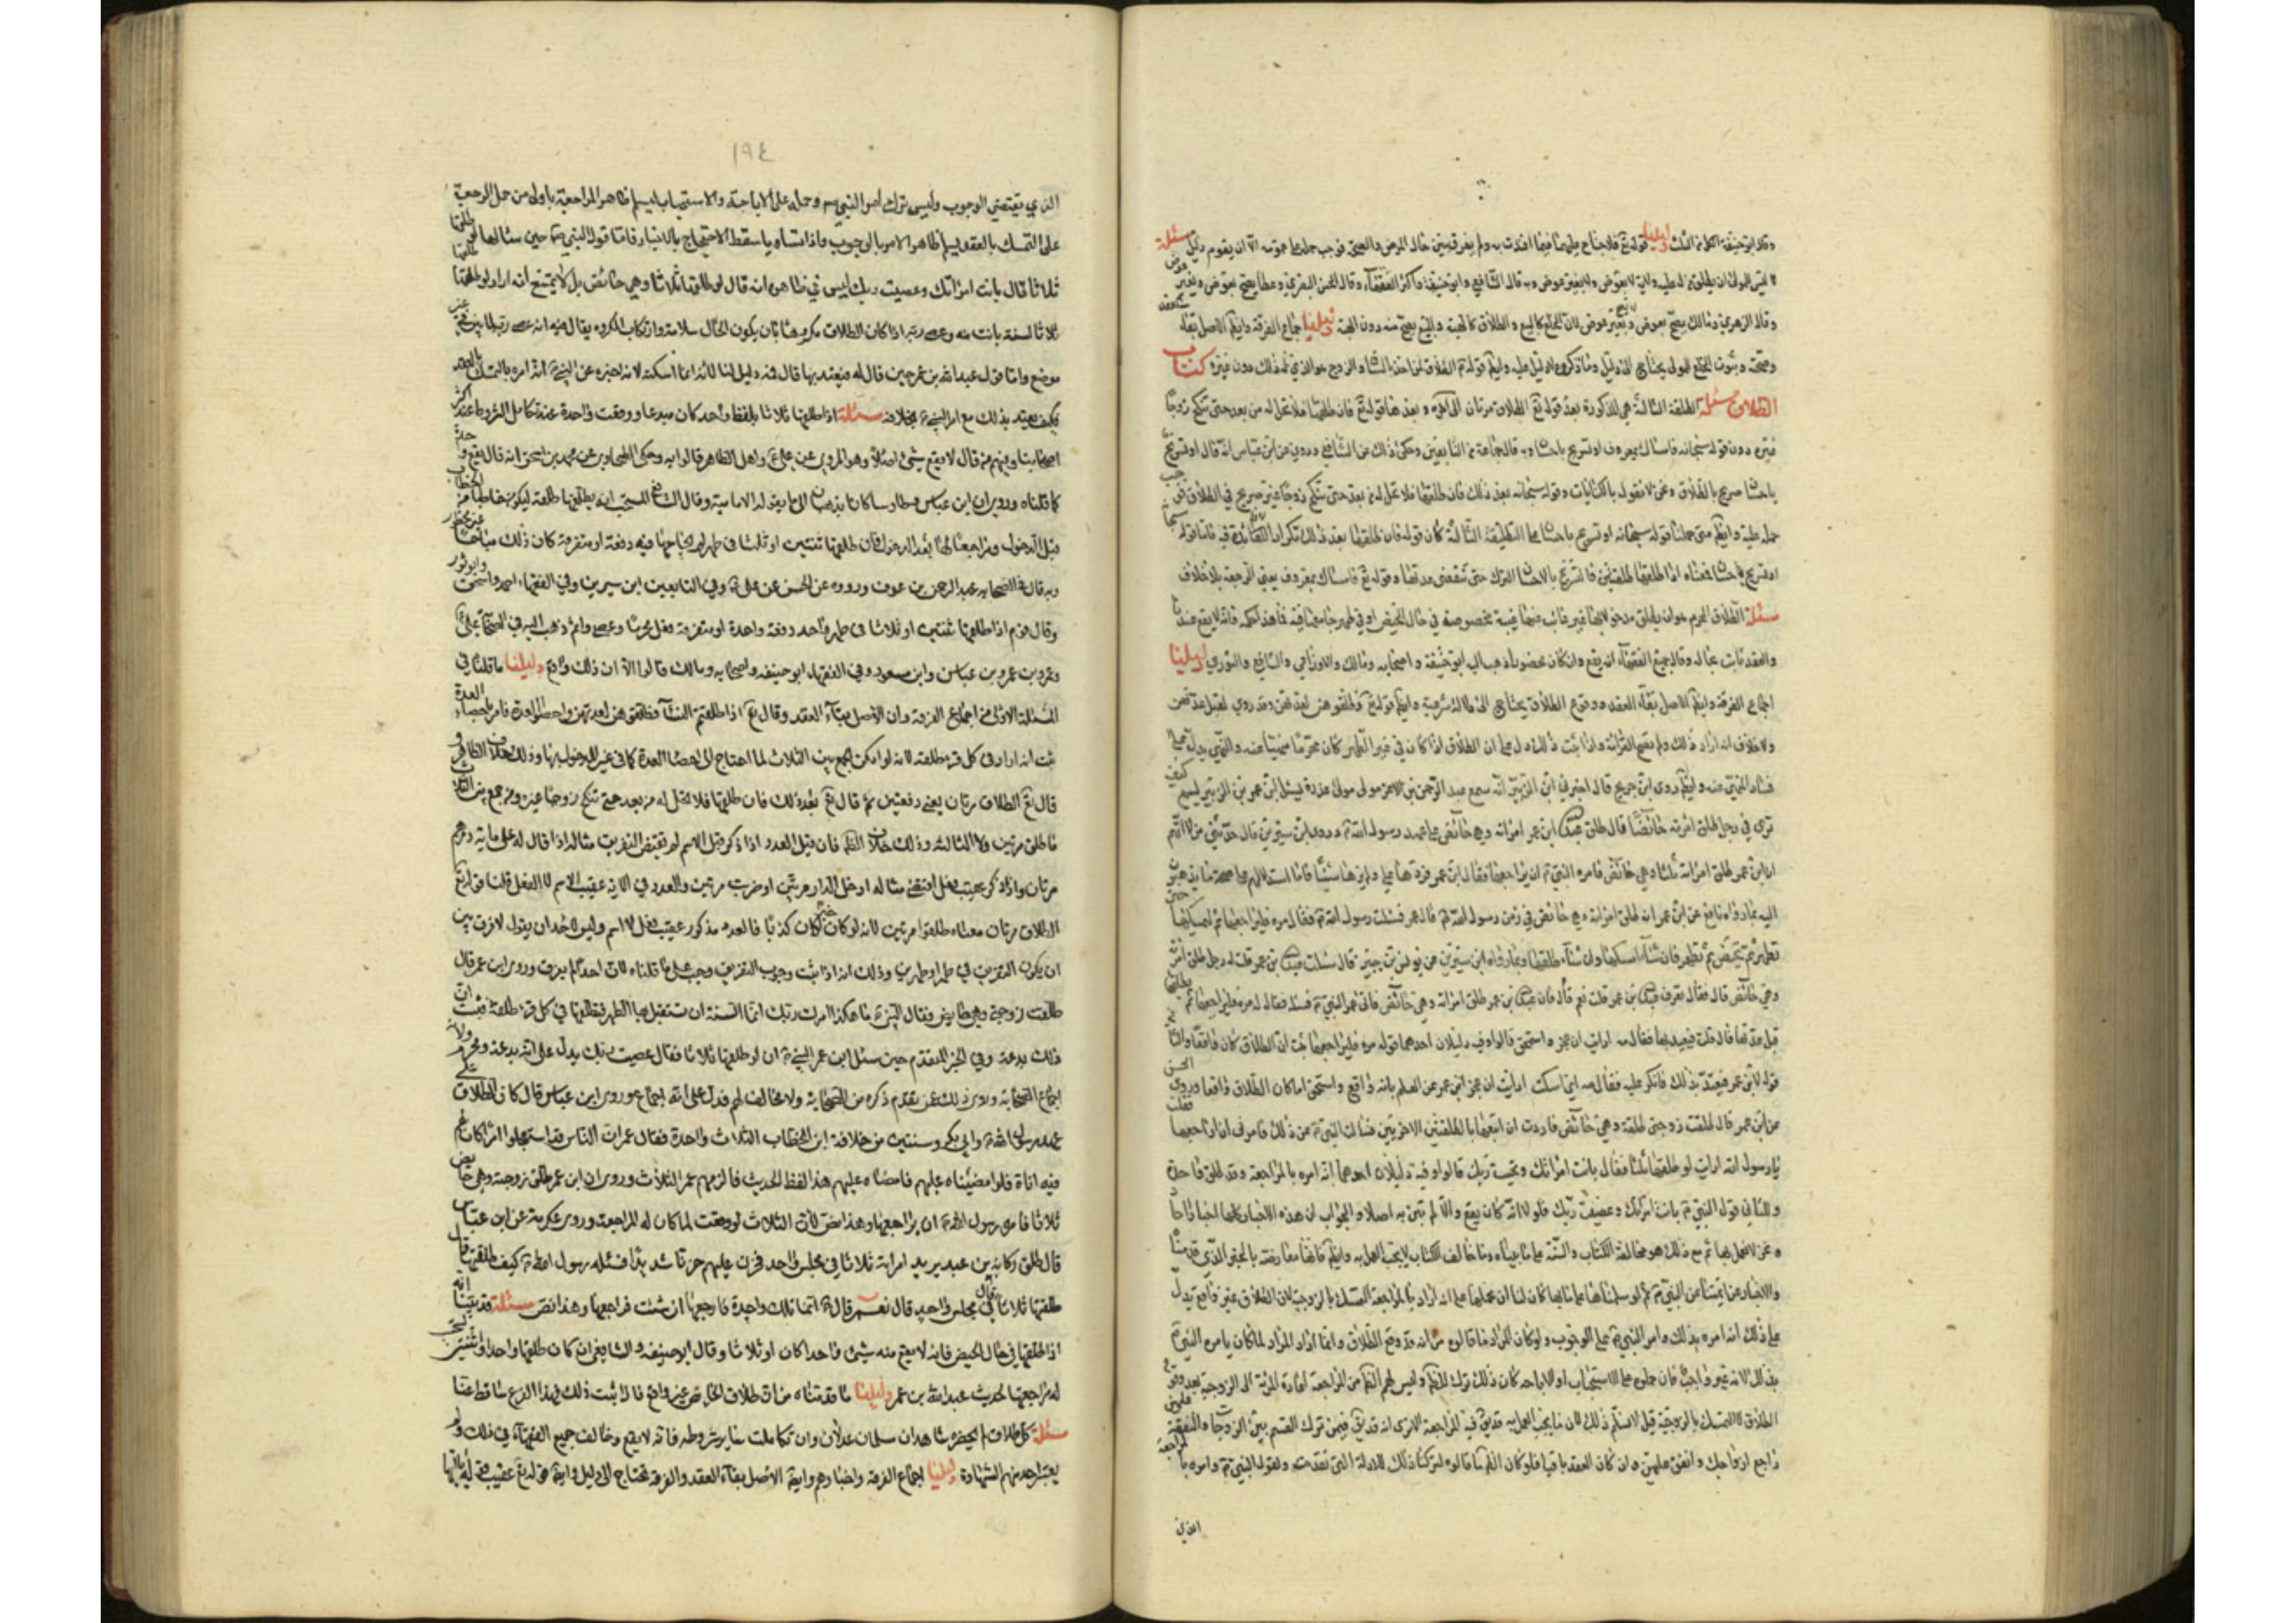 وقال ابو حنيفة اكله من الثلث دليلنا قوله تع فلا جناح عليهما فيما افتدت به ولم يفرق بين حال المرض والصحة فوجب حمله على عمومه الا ان يقوم دليل مسئلة
ليس للولي ان يطلق له عليه ولاية لا بعوض ولا بغير عوض وبه قال الشافعي وابو حنيفة واكثر الفقهاء وقال الحسن البصري وعطا يصح بعوض وبغير عوض
وقال الزهري ومالك يصح بعوض ولا بغير عوض لان الخلع كالبيع والطلاق كالهبة والبيع يصح منه دون الهبة دليلنا اجماع الفرقة وايضا الاصل بقاء العقد
وصحته وثبوت الخلع للولي يحتاج الى دليل وما ذكروه لا دليل عليه وايضا قوله الطلاق لمن اخذ بالساق والزوج هو الذي له ذلك دون غيره كتاب
الطلاق مسئلة الطلقة الثالثة هي المذكورة بعد قوله تع الطلاق مرتان الى اخره وبعدها قوله تع فان طلقها فلا تحل له من بعد حتى تنكح زوجا
غيره دون قوله سبحانه فامساك بمعروف او تسريح باحسان وبه قال جماعة من التابعين وحكى ذلك عن الشافعي وروي عن ابن عباس انه قال او تسريح
باحسان صريح بالطلاق ونحن لا نقول بالكنايات وقوله سبحانه بعد ذلك فان طلقها فلا تحل له من بعد حتى تنكح زوجا غيره صريح في الطلاق فوجب
حمله عليه وايضا متى حملنا قوله سبحانه او تسريح باحسان على التطليقة الثالثة كان قوله فان طلقها بعد ذلك تكرارا لا فائدة فيه فاما قوله سبحانه
او تسريح باحسان فمعناه اذا طلقها طلقتين فالتسريح بالاحسان الترك حتى تنقضي عدتها وقوله تع فامساك بمعروف يعني الرجعة بلا خلاف
مسئلة الطلاق المحرم هو ان يطلق مدخولا بها غير غائب عنها غيبة مخصوصة في حال الحيض او في طهر جامعها فيه فما هذا حكمه فانه لا يقع عندنا
والعقد ثابت بحاله وقال جميع الفقهاء انه يقع وان كان محضورا ذهب اليه ابو حنيفة واصحابه ومالك والاوزاعي والشافعي والثوري دليلنا
اجماع الفرقة وايضا الاصل بقاء العقد ووقوع الطلاق يحتاج الى دلالة شرعية وايضا قوله تع فطلقوهن لعدتهن وقد روي لقبل عدتهن
ولا خلاف انه اراد ذلك وان لم تصح القراءة به واذا ثبت ذلك دل على ان الطلاق اذا كان في غير الطهر كان محرما منهيا عنه والنهي يدل على
فساد المنهي عنه وايضا روى ابن جريج قال اخبرني ابن الزبير انه سمع عبد الرحمن بن الايمن مولى عزة يسئل ابن عمر بن الزبير يسمع كيف
ترى في رجل طلق امرأته حائضا قال طلق عبد الله ابن عمر امرأته وهي حائض على عهد رسول الله ص وروى ابن سيرين قال حدثني من لا اتهم
ان ابن عمر طلق امرأته ثلثا وهي حائض فامره النبي ص ان يراجعها
اليه بما رواه نافع عن ابن عمر انه طلق امرأته وهي حائض في زمن رسول الله ص قال عمر فسئلت رسول الله ص فقال مره فليراجعها ثم ليمسكها حتى
تطهر ثم تحيض ثم تطهر فان شاء امسكها وان شاء طلقها وبما رواه ابن سيرين عن يونس بن جبير قال سئلت عبد الله بن عمر قلت له رجل طلق امرأته
وهي حائض قال فقال تعرف عبد الله بن عمر قلت نعم قال فان عبد الله بن عمر طلق امرأته وهي حائض فاتى عمر النبي ص فسئله فقال له مره فليراجعها ثم يطلقها
قبل عدتها قال قلت فيعتد بها فقال مه ارايت ان عجز واستحمق قالوا وفيه دليلان احدهما قوله مره فليراجعها ثبت ان الطلاق كان واقعا والثاني
قوله لابن عمر فيعتد بذلك فانكر عليه فقال مه اين اسكت ارايت ان عجز ابن عمر عن العلم بانه واقع واستحمق اما كان الطلاق واقعا وروى الحسن
عن ابن عمر قال طلقت زوجتي طلقة وهي حائض فاردت ان اتبعها بالطلقتين الاخريين فسئالت النبي ص عن ذلك فامرني ان اراجعها فقلت
يا رسول الله ارايت لو طلقتها ثلثا فقال بانت امرأتك وعصيت ربك قالوا وفيه دليلان احدهما انه امره بالمراجعة وقد طلق واحدة
والثاني قول النبي ص بانت امرأتك وعصيت ربك فلولا انه كان يقع والا لم تبن به اصلا والجواب ان هذه الاخبار كلها اخبار احاد
ونحن لا نعمل بها ثم مع ذلك هو مخالفة الكتاب والسنة على ما بيناه وما خالف الكتاب لا يجب العمل به وايضا فانها معارضة بالخبر الذي قدمناه
والاخبار عن ائمتنا عن النبي ص ثم لو سلمناها على ما بها كان لنا ان نحملها على انه اراد بالمراجعة التمسك بالزوجية لان الطلاق غير واقع يدل
على ذلك انه امره بذلك وامر النبي ص على الوجوب ولو كان المراد ما قالوه من انه قد وقع الطلاق وانما اراد المراد لما كان يامره النبي ص
بذلك لانه غير واجب فان حملوه على الاستحباب او الاباحة كان ذلك ترك الظاهر وليس لهم الظاهر من المراجعة اعادة المرأة الى الزوجية بعد وقوع
الطلاق لا التمسك بالزوجية قيل لا نسلم ذلك لان ما يجب العمل به قد يقع فيه المراجعة الا ترى انه قد يقال فيمن ترك القسم بين الزوجات والنفقة عليهن
راجع ازواجك وانفق عليهن وان كان العقد باقيا فلو كان الظاهر ما قالوه لتركنا ذلك للادلة التي تقدمت ولقول النبي ص وامره بالمراجعة
الذي
١٩٤
الذي يقتضي الوجوب وليس ترك امر النبي ص وحمله على الاباحة والاستحباب ليسلم ظاهر المراجعة باولى من حمل الرجعة
على التمسك بالعقد ليسلم ظاهر الامر بالوجوب واذا تساويا سقط الاحتجاج بالاخبار فاما قول النبي ص حين سئاله لو طلقتها
ثلاثا قال بانت امرأتك وعصيت ربك ليس في ظاهره انه قال لو طلقتها ثلاثا وهي حائض بل لا يمتنع انه اراد لو طلقتها
ثلاثا لسنة بانت منه وعصى ربه اذا كان الطلاق مكروها بان يكون الحال سلامة وارتكاب المكروه يقال فيه انه عصى ربه لما بين في غير
موضع واما قول عبد الله بن عمر حين قال له فيعتد بها قال فمه دليل لنا لانه انما اسكته لانه اخبره عن النبي ص انه امره بالتمسك بالعقد
فكيف يعتد بذلك مع امر النبي ص بخلافه مسئلة اذا طلقها ثلاثا بلفظ واحد كان مبدعا ووقعت واحدة عند تكامل الشروط عند اكثر
اصحابنا وفيهم من قال لا يقع شئ اصلا وهو المروي عن علي ع واهل الظاهر قالوا به وحكى الطحاوي عن محمد بن اسحق انه قال يقع واحدة
كما قلناه وروي ان ابن عباس وطاوسا كانا يذهبان الى ما يقوله الامامية وقال الشافعي المستحب ان يطلقها طلقة ليكون خاطبا من الخطاب
قبل الدخول ومراجعا لها بعد الدخول فان طلقها ثنتين او ثلثا في طهر لم يجامعها فيه دفعة او متفرقة كان ذلك مباحا غير محظور
وبه قال في الصحابة عبد الرحمن بن عوف ورووه عن الحسن عن علي ع وفي التابعين ابن سيرين وفي الفقهاء احمد واسحق وابو ثور
وقال قوم اذا طلقها ثنتين او ثلاثا في طهر واحد دفعة واحدة او متفرقة فعل محرما وعصى واثم ذهب اليه في الصحابة علي ع
وعمر وبن عمر وبن عباس وابن مسعود وفي الفقهاء ابو حنيفة واصحابه ومالك قالوا الا ان ذلك واقع دليلنا ما قلناه في
المسئلة الاولى من اجماع الفرقة وان الاصل بقاء العقد وقال تع اذا طلقتم النساء فطلقوهن لعدتهن واحصوا العدة فامر باحصاء العدة
ثبت انه اراد في كل قرء طلقة لانه لو امكن الجمع بين الثلاث لما احتاج الى احصاء العدة كما في غير المدخول بها وذلك خلاف الظاهر
قال تع الطلاق مرتان يعني دفعتين ثم قال تع بعد ذلك فان طلقها فلا تحل له من بعد حتى تنكح زوجا غيره ومن جمع بين الثلاث
فما طلق مرتين ولا الثالثة وذلك خلاف الظاهر فان قيل العدد اذا ذكر قبل الاسم لم يقتض التفريق مثاله اذا قال له علي مائة درهم
مرتان واذا ذكر عقيب فعل اقتضى مثاله ادخل الدار مرتين او ضربت مرتين والعدد في الاية عقيب الاسم لا الفعل قلنا قوله تع
الطلاق مرتان معناه طلقوا مرتين لانه لو كان خبرا لكان كذبا فالعدد مذكور عقيب فعل لا اسم وليس لاحد ان يقول لا فرق بين
ان يكون التفريق في طهر او طهرين وذلك انه اذا ثبت وجوب التفريق وجب على ما قلناه لان احدا لم يفرق وروى ابن عمر قال
طلقت زوجتي وهي حايض فقال النبي ص ما هكذا امرك ربك انما السنة ان تستقبل بها الطهر فتطلقها في كل قرء طلقة فثبت ان
ذلك بدعة وفي الخبر المتقدم حين سئل ابن عمر النبي ص ان لو طلقتها ثلاثا فقال عصيت ربك يدل على انه بدعة ومحرم ولانه
اجماع الصحابة وروى ذلك عمن تقدم ذكره من الصحابة ولا مخالف لهم فدل على انه اجماع وروى ابن عباس قال كان الطلاق على
عهد رسول الله ص وابي بكر وسنتين من خلافة ابن الخطاب الثلاث واحدة فقال عمر ان الناس قد استعجلوا امرا كان لهم
فيه اناة فلو امضيناه عليهم فامضاه عليهم هذا لفظ الحديث فالزمهم عمر الثلاث وروي ان ابن عمر طلق زوجته وهي حايض
ثلاثا فامره رسول الله ص ان يراجعها وهذا نص لان الثلاث لو وقعت لما كان له المراجعة وروى عكرمة عن ابن عباس
قال طلق ركانة بن عبد يزيد امراته ثلاثا في مجلس واحد فحزن عليهم حزنا شديدا فسئله رسول الله ص كيف طلقتها قال
طلقتها ثلاثا قال في مجلس واحد قال نعم قال ص انما تلك واحدة فارجعها ان شئت فراجعها وهذا نص مسئلة قد بينا انه
اذا طلقها في حال الحيض فانه لا يقع منه شئ واحدا كان او ثلاثا وقال ابو حنيفة والشافعي ان كان طلقها واحدا او ثنتين يستحب
له مراجعتها لحديث عبد الله بن عمر دليلنا ما قدمناه من ان طلاق الحايض غير واقع فاذا ثبت ذلك فهذا الفرع ساقط عنا
مسئلة كل طلاق لم يحضره شاهدان مسلمان عدلان وان تكاملت سائر شروطه فانه لا يقع وخالف جميع الفقهاء في ذلك ولم
يعتبر احد منهم الشهادة دليلنا اجماع الفرقة واخبارهم وايضا الاصل بقاء العقد والفرقة تحتاج الى دليل وايضا قوله تع عقيب قوله يا ايها